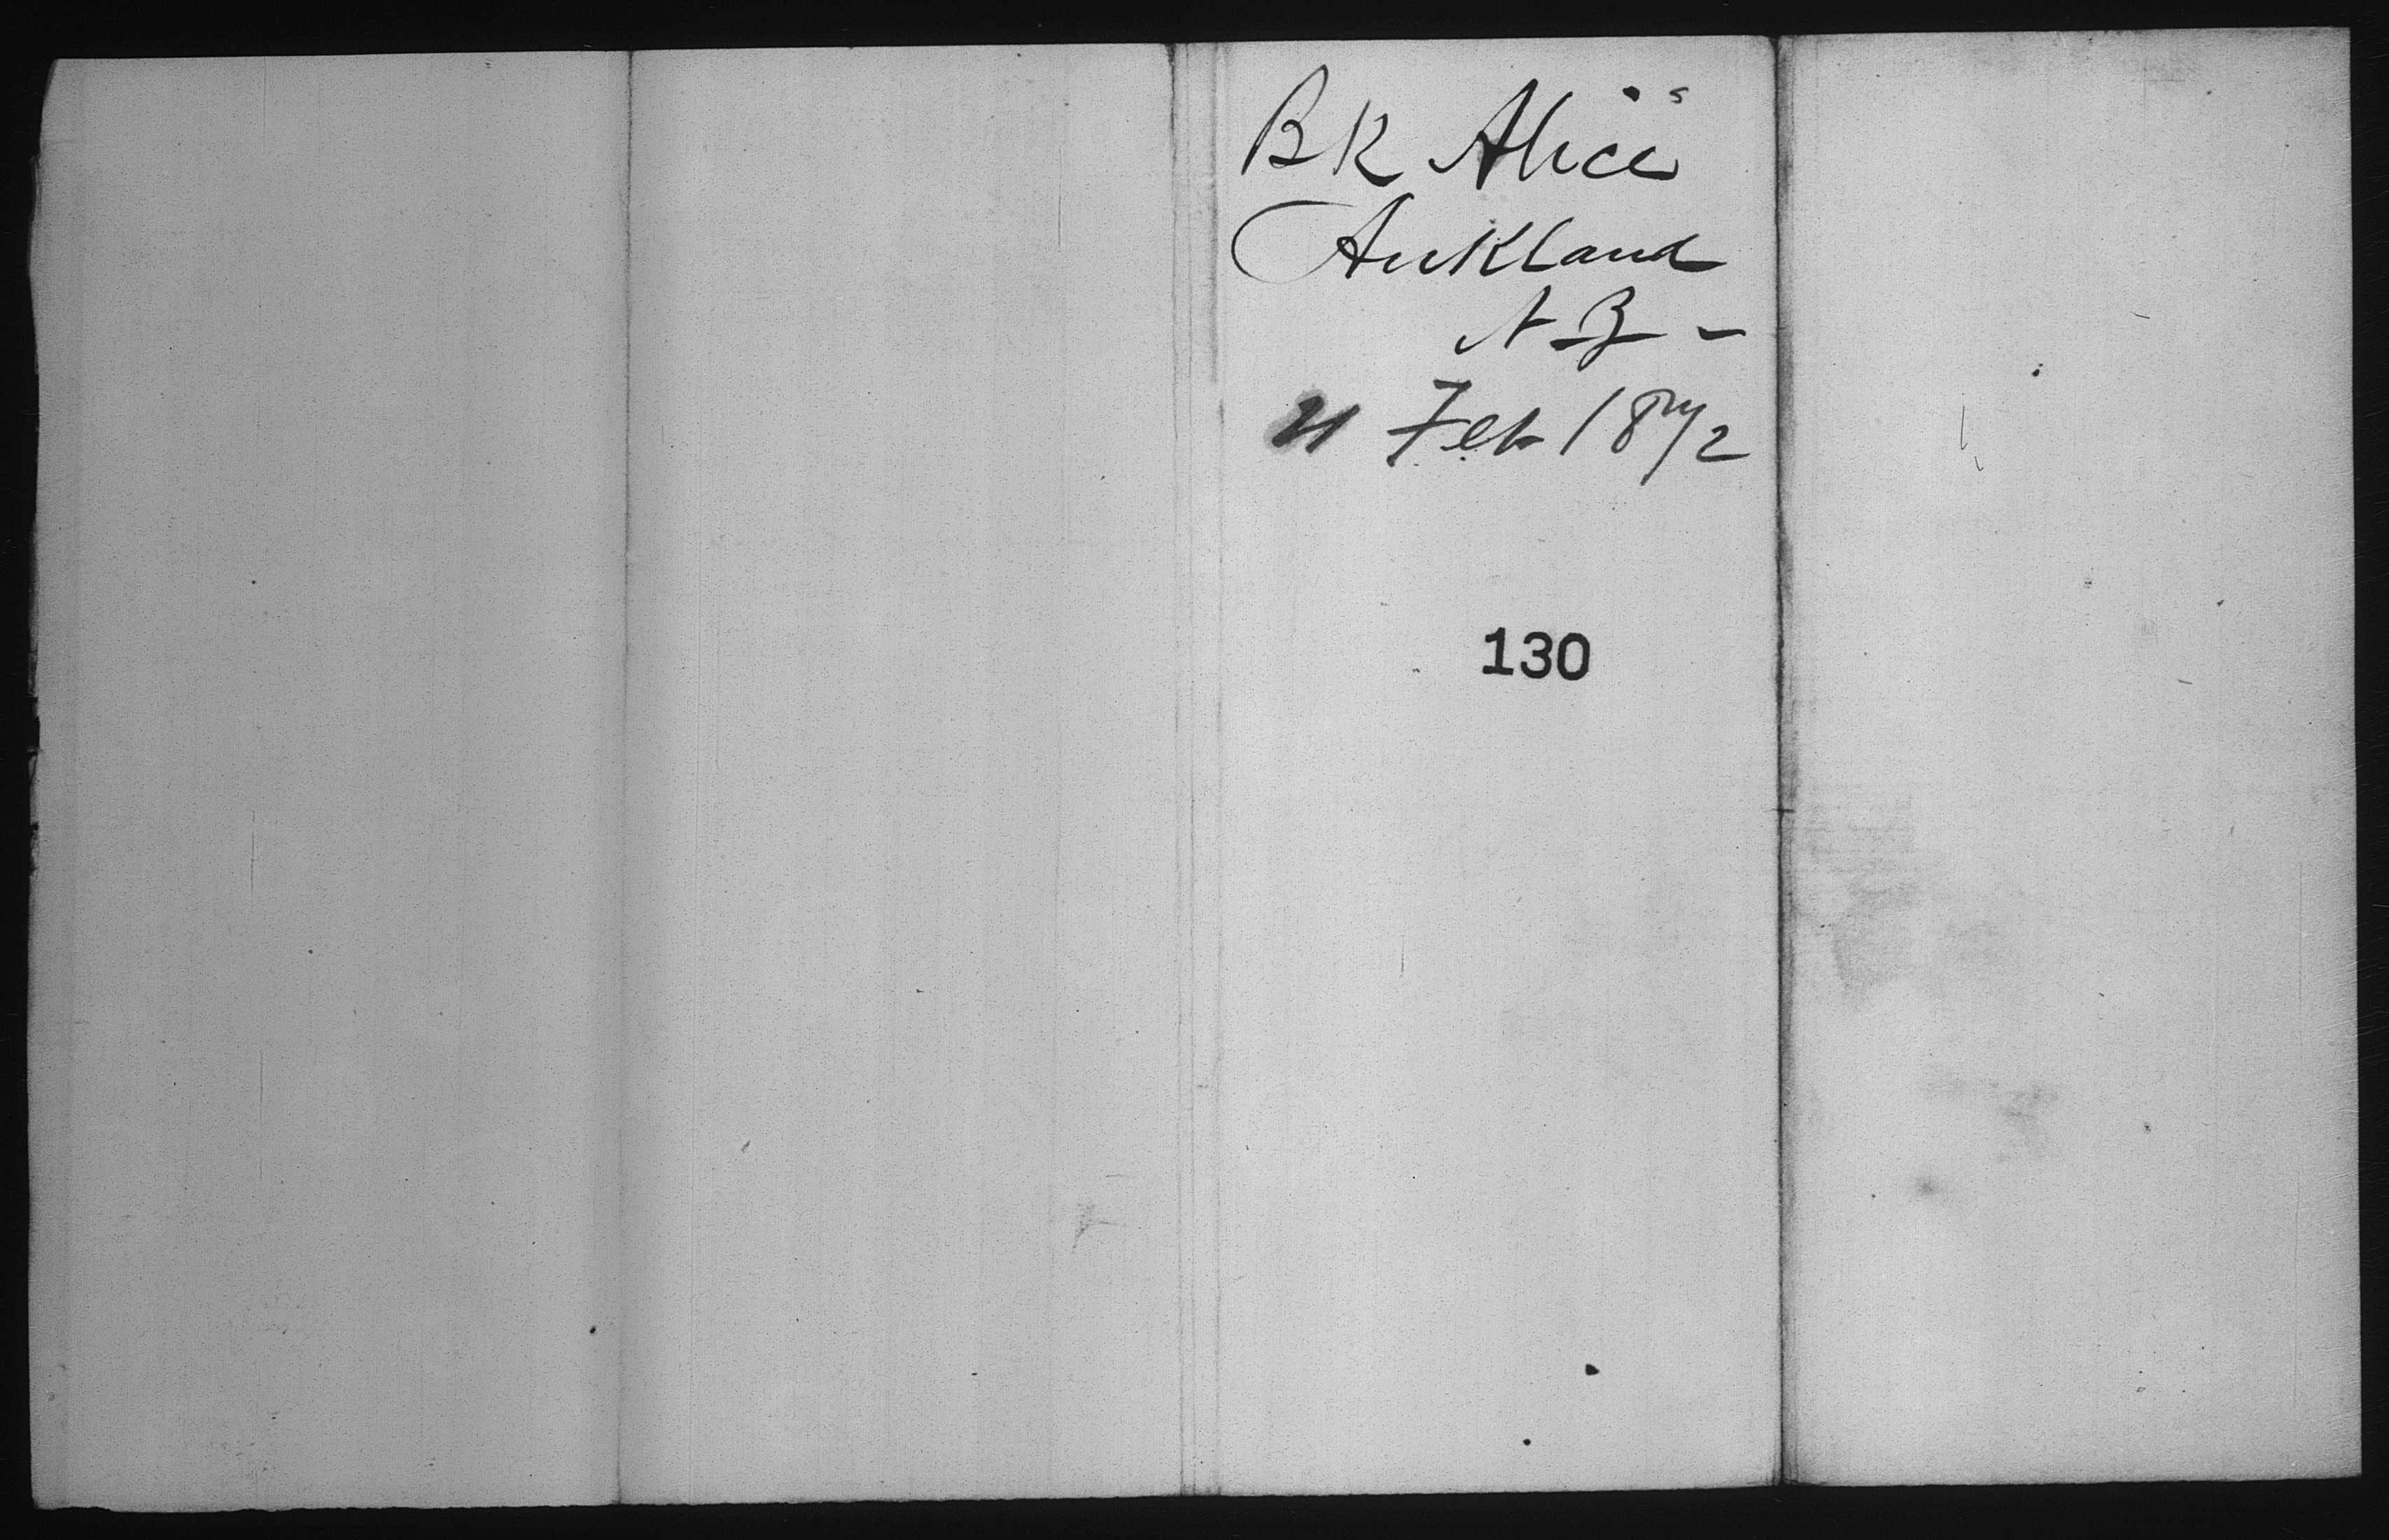 BK Alice
Aukland
N Z –
21 Feb 1872
130